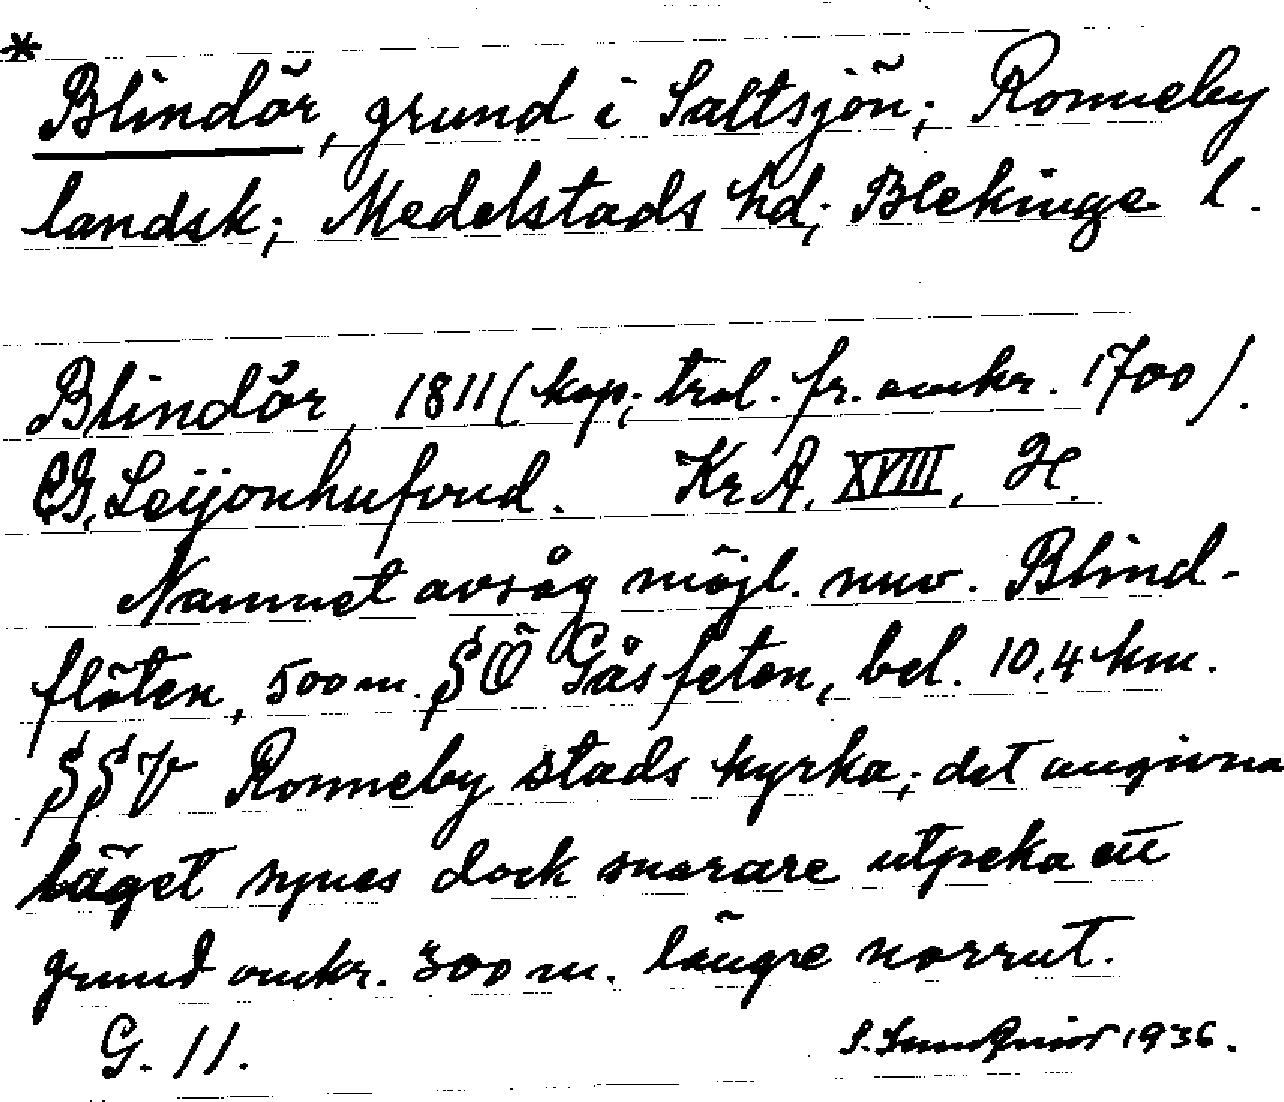 *
Blindör, grund i Saltsjön; Ronneby
landsk; Medelstads hd; Blekinge l.
Blindör, 1811 (kop; trol. fr. omkr. 1700).
CG. Leijonhufvud. Kr A, XVIII, H.
Namnet avsåg möjl. nuv. Blind-
flöten, 500 m. SÖ Gåsfeten, bel. 10,4 km.
SSV Ronneby stads kyrka; det angivna
läget synes dock snarare utpeka ett
grund omkr. 300 m. längre norrut.
G. 11.
S. Sundquist 1936.